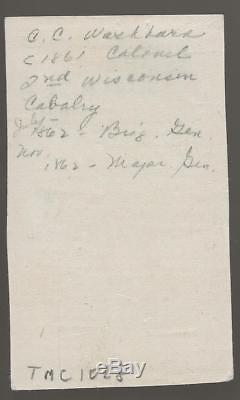 C. C. Washburn
C 1861 Colonel
2nd Wisconsin
Cavalry
July
1862 - Brig. Gen.
Nov.
1862 - Major Gen.
TMC 1028